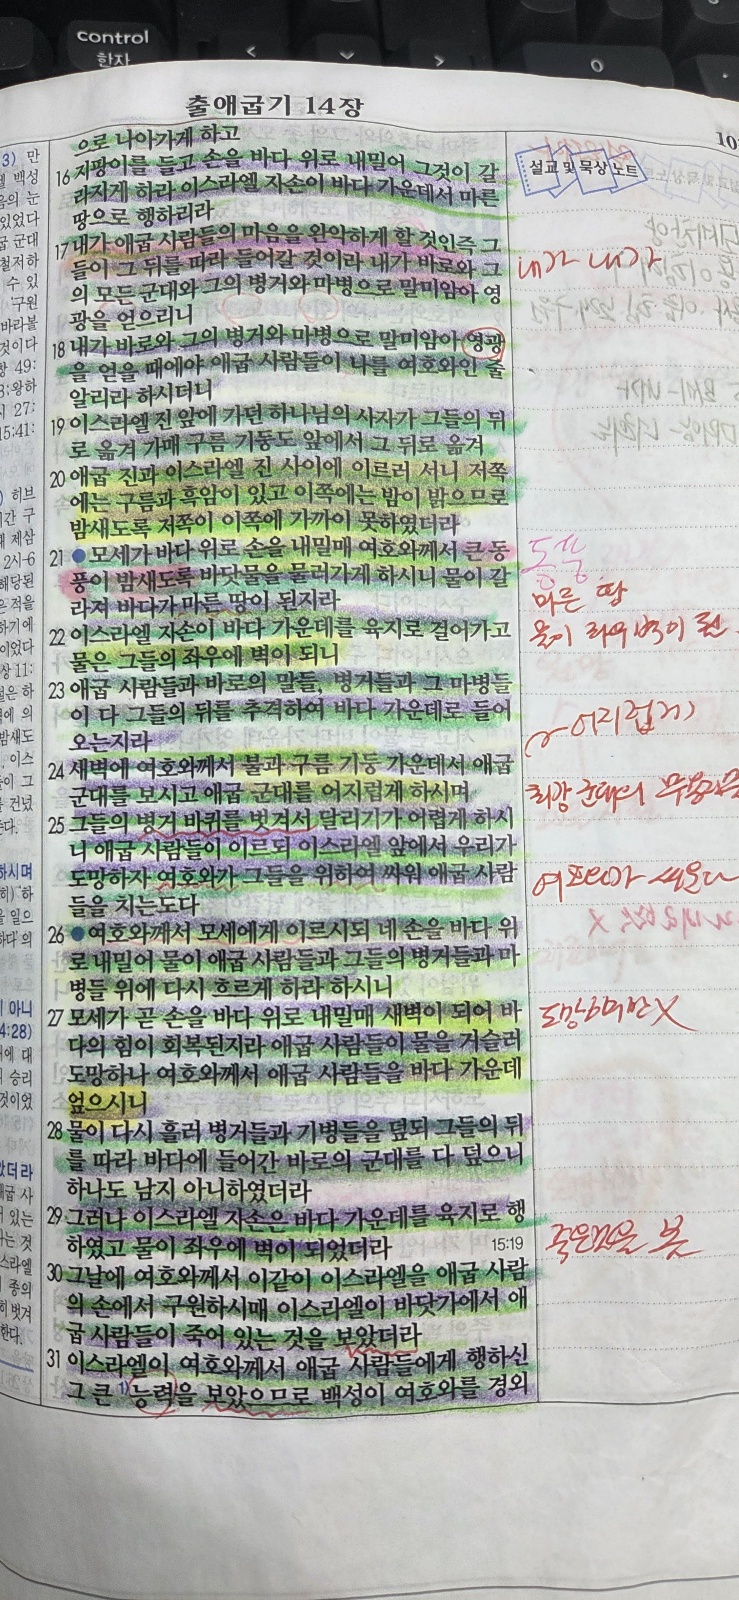 control
한자
출애굽기 14장
으로 나아가게 하고
16 지팡이를 들고 손을 바다 위로 내밀어 그것이 갈
라지게 하라 이스라엘 자손이 바다 가운데서 마른
땅으로 행하리라
17 내가 애굽 사람들의 마음을 완악하게 할 것인즉 그
들이 그 뒤를 따라 들어갈 것이라 내가 바로와 그
의 모든 군대와 그의 병거와 마병으로 말미암아 영
광을 얻으리니
18 내가 바로와 그의 병거와 마병으로 말미암아 영광
을 얻을 때에야 애굽 사람들이 나를 여호와인 줄
알리라 하시더니
19 이스라엘 진 앞에 가던 하나님의 사자가 그들의 뒤
로 옮겨 가매 구름 기둥도 앞에서 그 뒤로 옮겨
20 애굽 진과 이스라엘 진 사이에 이르러 서니 저쪽
에는 구름과 흑암이 있고 이쪽에는 밤이 밝으므로
밤새도록 저쪽이 이쪽에 가까이 못하였더라
21 ●모세가 바다 위로 손을 내밀매 여호와께서 큰 동
풍이 밤새도록 바닷물을 물러가게 하시니 물이 갈
라져 바다가 마른 땅이 된지라
22 이스라엘 자손이 바다 가운데를 육지로 걸어가고
물은 그들의 좌우에 벽이 되니
23 애굽 사람들과 바로의 말들, 병거들과 그 마병들
이 다 그들의 뒤를 추격하여 바다 가운데로 들어
오는지라
24 새벽에 여호와께서 불과 구름 기둥 가운데서 애굽
군대를 보시고 애굽 군대를 어지럽게 하시며
25 그들의 병거 바퀴를 벗겨서 달리기가 어렵게 하시
니 애굽 사람들이 이르되 이스라엘 앞에서 우리가
도망하자 여호와가 그들을 위하여 싸워 애굽 사람
들을 치는도다
26 ●여호와께서 모세에게 이르시되 네 손을 바다 위
로 내밀어 물이 애굽 사람들과 그들의 병거들과 마
병들 위에 다시 흐르게 하라 하시니
27 모세가 곧 손을 바다 위로 내밀매 새벽이 되어 바
다의 힘이 회복된지라 애굽 사람들이 물을 거슬러
도망하나 여호와께서 애굽 사람들을 바다 가운데
엎으시니
28 물이 다시 흘러 병거들과 기병들을 덮되 그들의 뒤
를 따라 바다에 들어간 바로의 군대를 다 덮으니
하나도 남지 아니하였더라
29 그러나 이스라엘 자손은 바다 가운데를 육지로 행
하였고 물이 좌우에 벽이 되었더라 15:19
30 그날에 여호와께서 이같이 이스라엘을 애굽 사람
의 손에서 구원하시매 이스라엘이 바닷가에서 애
굽 사람들이 죽어 있는 것을 보았더라
31 이스라엘이 여호와께서 애굽 사람들에게 행하신
그 큰 1)능력을 보았으므로 백성이 여호와를 경외
설교 및 묵상 노트
내가 내가
동풍
마른 땅
물이 좌우 벽이 된
어지럽게
최강 군대의
죽은것을 봄